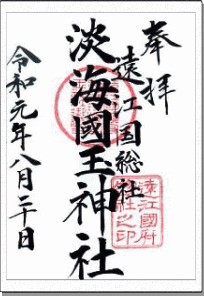 奉拝
遠江国総社
淡海國玉神社
令和元年八月二十日
遠江國府
総社之印